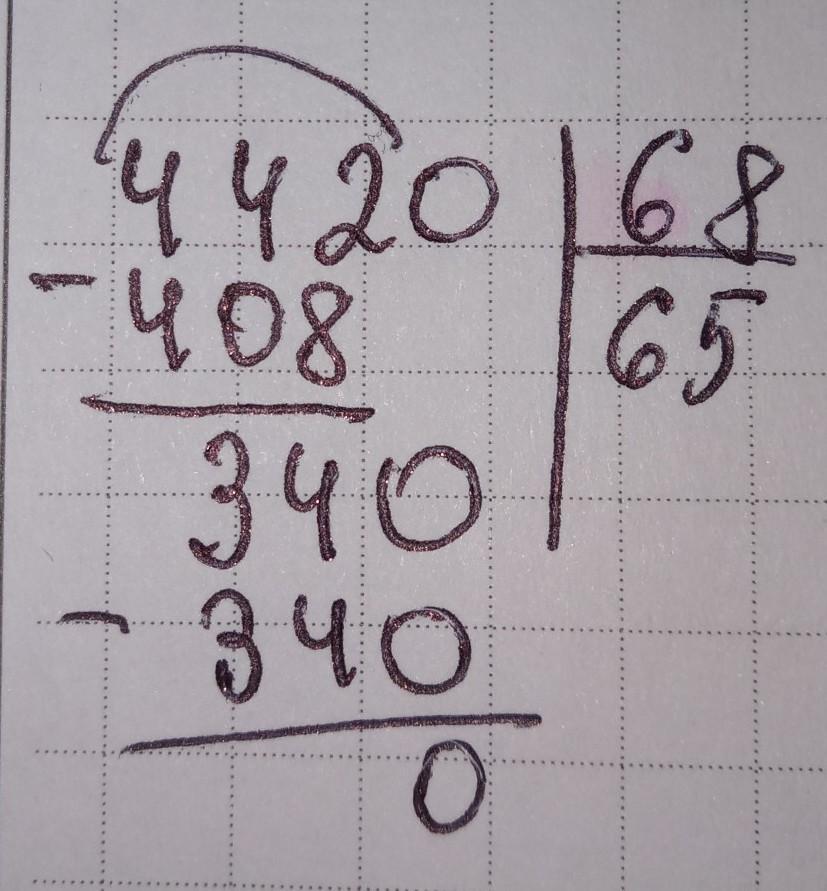 4420 | 68
- 408 | 65
340
- 340
0